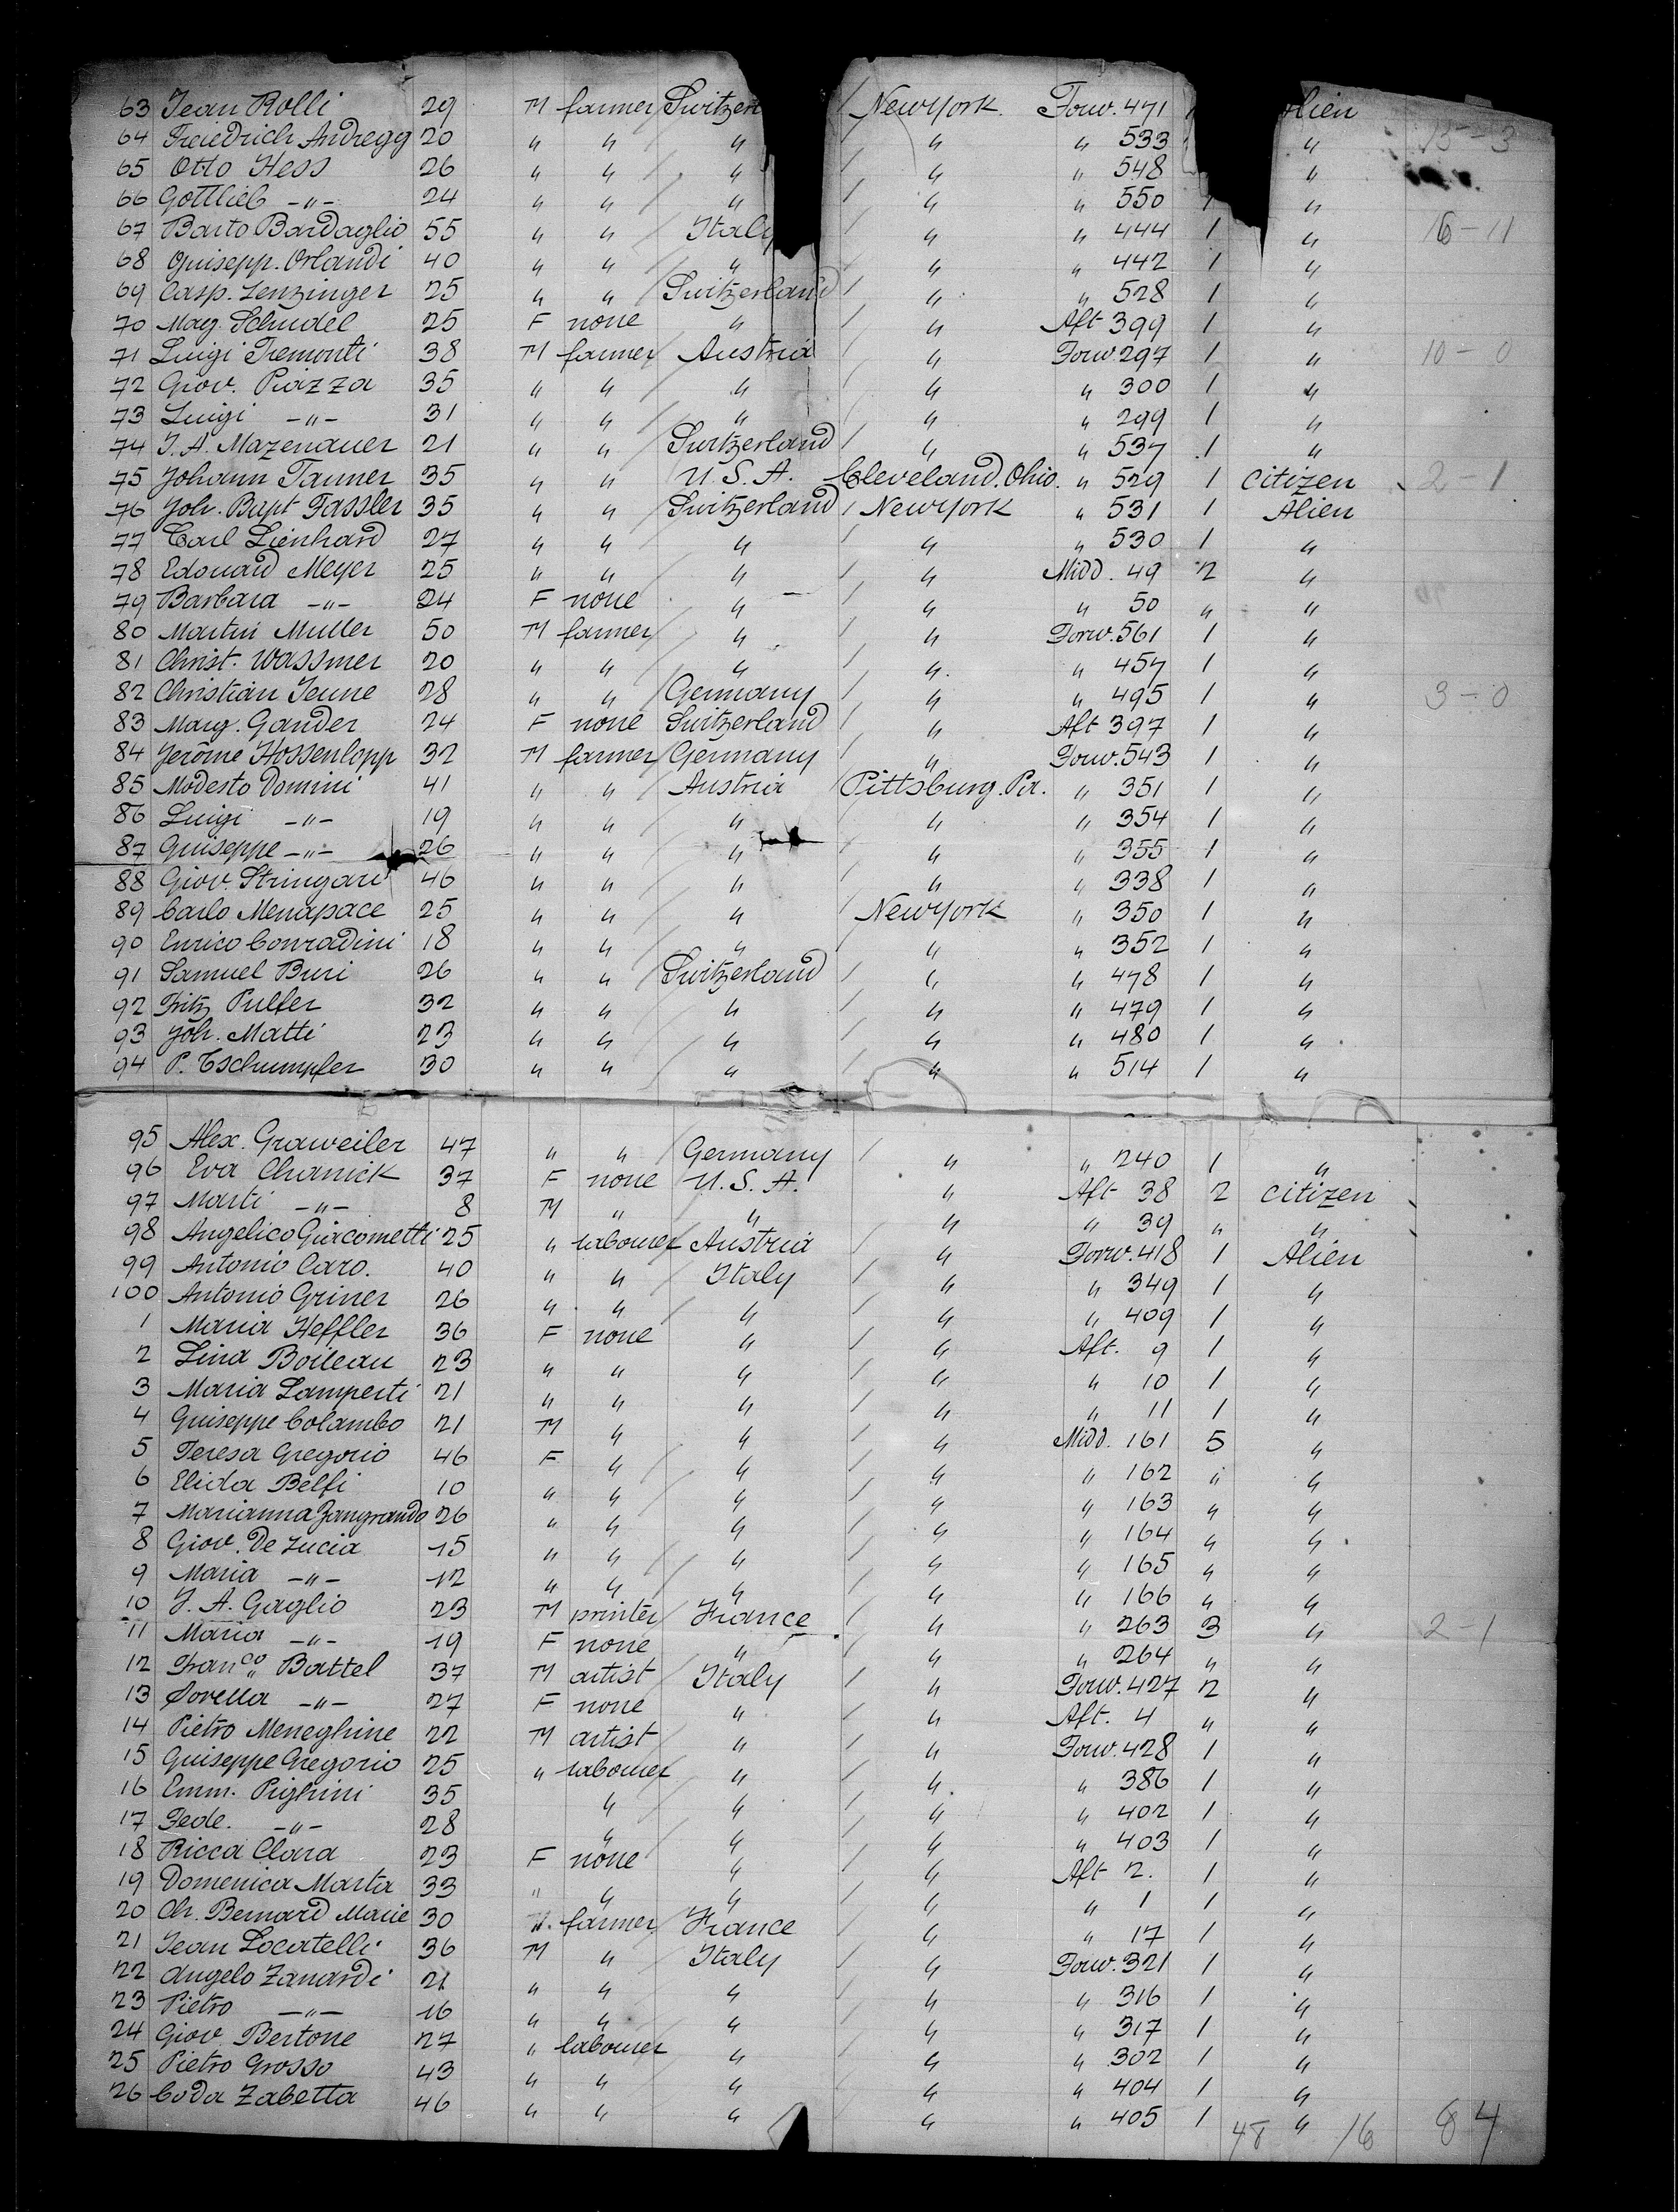 63 Jean Rolli 29 M farmer Switzerl / New York. Forw. 471 Alien
64 Freiedrich Andregg 20 " " / " / " " 533 " 15 - 3
65 Otto Hess 26 " " / " / " " 548 "
66 Gottlieb -"- 24 " " / " / " " 550 1 "
67 Barto Bardaglio 55 " " / Italy " " 444 1 " 16 - 11
68 Guisepp. Orlandi 40 " " / " / " " 442 1 "
69 Casp. Lenzinger 25 " " Switzerland / " " 528 1 "
70 Mag. Schudel 25 F none " / " Aft 399 1 "
71 Luigi Tremonti 38 M farmer Austria / " Forw 297 1 " 10 - 0
72 Giov. Piazza 35 " " / " / " " 300 1 "
73 Luigi -"- 31 " " / " / " " 299 1 "
74 J. A. Mazenauer 21 " " Switzerland / " " 537 1 "
75 Johann Tanner 35 " " U. S. A. Cleveland. Ohio. " 529 1 citizen 2 - 1
76 Joh. Bapt Fassler 35 " " Switzerland / New York " 531 1 Alien
77 Carl Lienhard 27 " " / " / " " 530 1 "
78 Edouard Meyer 25 " " / " / " Midd. 49 2 "
79 Barbara -"- 24 F none " / " " 50 " "
80 Martin Muller 50 M farmer / " / " Forw. 561 1 "
81 Christ. Wassmer 20 " " / " / " " 457 1 "
82 Christian Jenne 28 " " / Germany / " " 495 1 " 3 - 0
83 Marg. Gander 24 F none Switzerland / " Aft 397 1 "
84 Jerôme Hossenlopp 32 M farmer / Germany / " Forw. 543 1 "
85 Modesto Domini 41 " " / Austria Pittsburg. Pa. " 351 1 "
86 Luigi -"- 19 " " / " " " 354 1 "
87 Guiseppe -"- 26 " " / " / " " 355 1 "
88 Giov. Stringari 46 " " / " / " " 338 1 "
89 Carlo Menapace 25 " " / " New York " 350 1 "
90 Enrico Conradini 18 " " / " / " " 352 1 "
91 Samuel Buri 26 " " Switzerland / " " 478 1 "
92 Fritz Pulfer 32 " " / " / " " 479 1 "
93 Joh. Matti 23 " " / " / " " 480 1 "
94 P. Tschumpfer 30 " " / " / " " 514 1 "
95 Alex. Graweiler 47 " " / Germany / " " 240 1 "
96 Eva Chanick 37 F none U. S. A. " Aft 38 2 citizen
97 Marti -"- 8 M " " " " 39 " "
98 Angelico Giacometti 25 " labourer Austria / " Forw. 418 1 Alien
99 Antonio Caro. 40 " " / Italy / " " 349 1 "
100 Antonio Griner 26 " " / " / " " 409 1 "
1 Maria Heffler 36 F none " / " Aft. 9 1 "
2 Lina Boileau 23 " " " / " " 10 1 "
3 Maria Lamperti 21 " " / " / " " 11 1 "
4 Guiseppe Colambo 21 M " / " / " Midd. 161 5 "
5 Teresa Gregorio 46 F " / " / " " 162 " "
6 Elida Belfi 10 " " / " / " " 163 " "
7 Marianna Zangrando 26 " " / " / " " 164 " "
8 Giov. De Lucia 15 " " / " / " " 165 " "
9 Maria -"- 12 " " / " / " " 166 " "
10 J. A. Gaglio 23 M printer France / " " 263 3 " 2 - 1
11 Maria -"- 19 F none " / " " 264 " "
12 Franco Battel 37 M artist Italy / " Forw. 427 2 "
13 Sorella -"- 27 F none " / " Aft. 4 " "
14 Pietro Meneghine 22 M artist " / " Forw. 428 1 "
15 Guiseppe Gregorio 25 " labourer " / " " 386 1 "
16 Emm. Pighini 35 " / " / " " 402 1 "
17 Fede. -"- 28 " / " / " " 403 1 "
18 Ricca Clara 23 F none " / " Aft 2. 1 "
19 Domenica Marta 33 " " / " / " " 1 1 "
20 Ch. Bernard Marie 30 ". farmer France / " " 17 1 "
21 Jean Locatelli 36 M " Italy / " Forw. 321 1 "
22 Angelo Zanardi 21 " " / " / " " 316 1 "
23 Pietro -"- 16 " " / " / " " 317 1 "
24 Giov. Bertone 27 " labourer " / " " 302 1 "
25 Pietro Grosso 43 " " / " / " " 404 1 "
26 Coda Zabetta 46 " " / " / " " 405 1 "
48 16 84